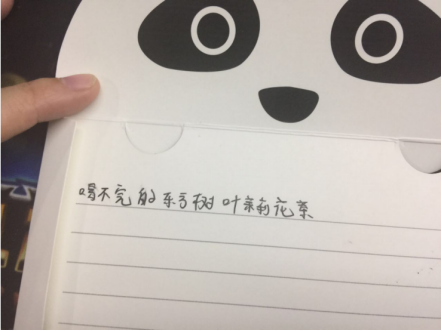 喝不完的东方树叶茉莉花茶